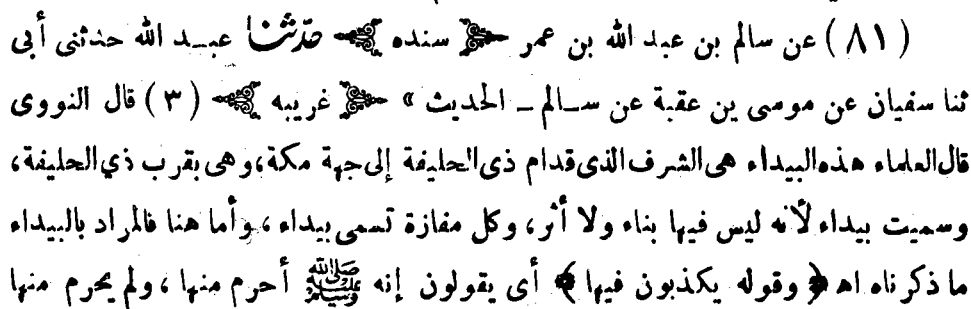 (٨١) عن سالم بن عبد الله بن عمر ﴿ سنده ﴾ حدّثنا عبد الله حدثنى أبى
ثنا سفيان عن موسى بن عقبة عن سالم ـ الحديث » ﴿ غريبه ﴾ (٣) قال النووى
قال العلماء هذه البيداء هى الشرف الذى قدام ذى الحليفة إلى جهة مكة، وهى بقرب ذي الحليفة،
وسميت بيداء لأنه ليس فيها بناء ولا أثر، وكل مفازة تسمى بيداء، وأما هنا فالمراد بالبيداء
ما ذكرناه اه ﴿ وقوله يكذبون فيها ﴾ أى يقولون إنه ﷺ أحرم منها، ولم يحرم منها